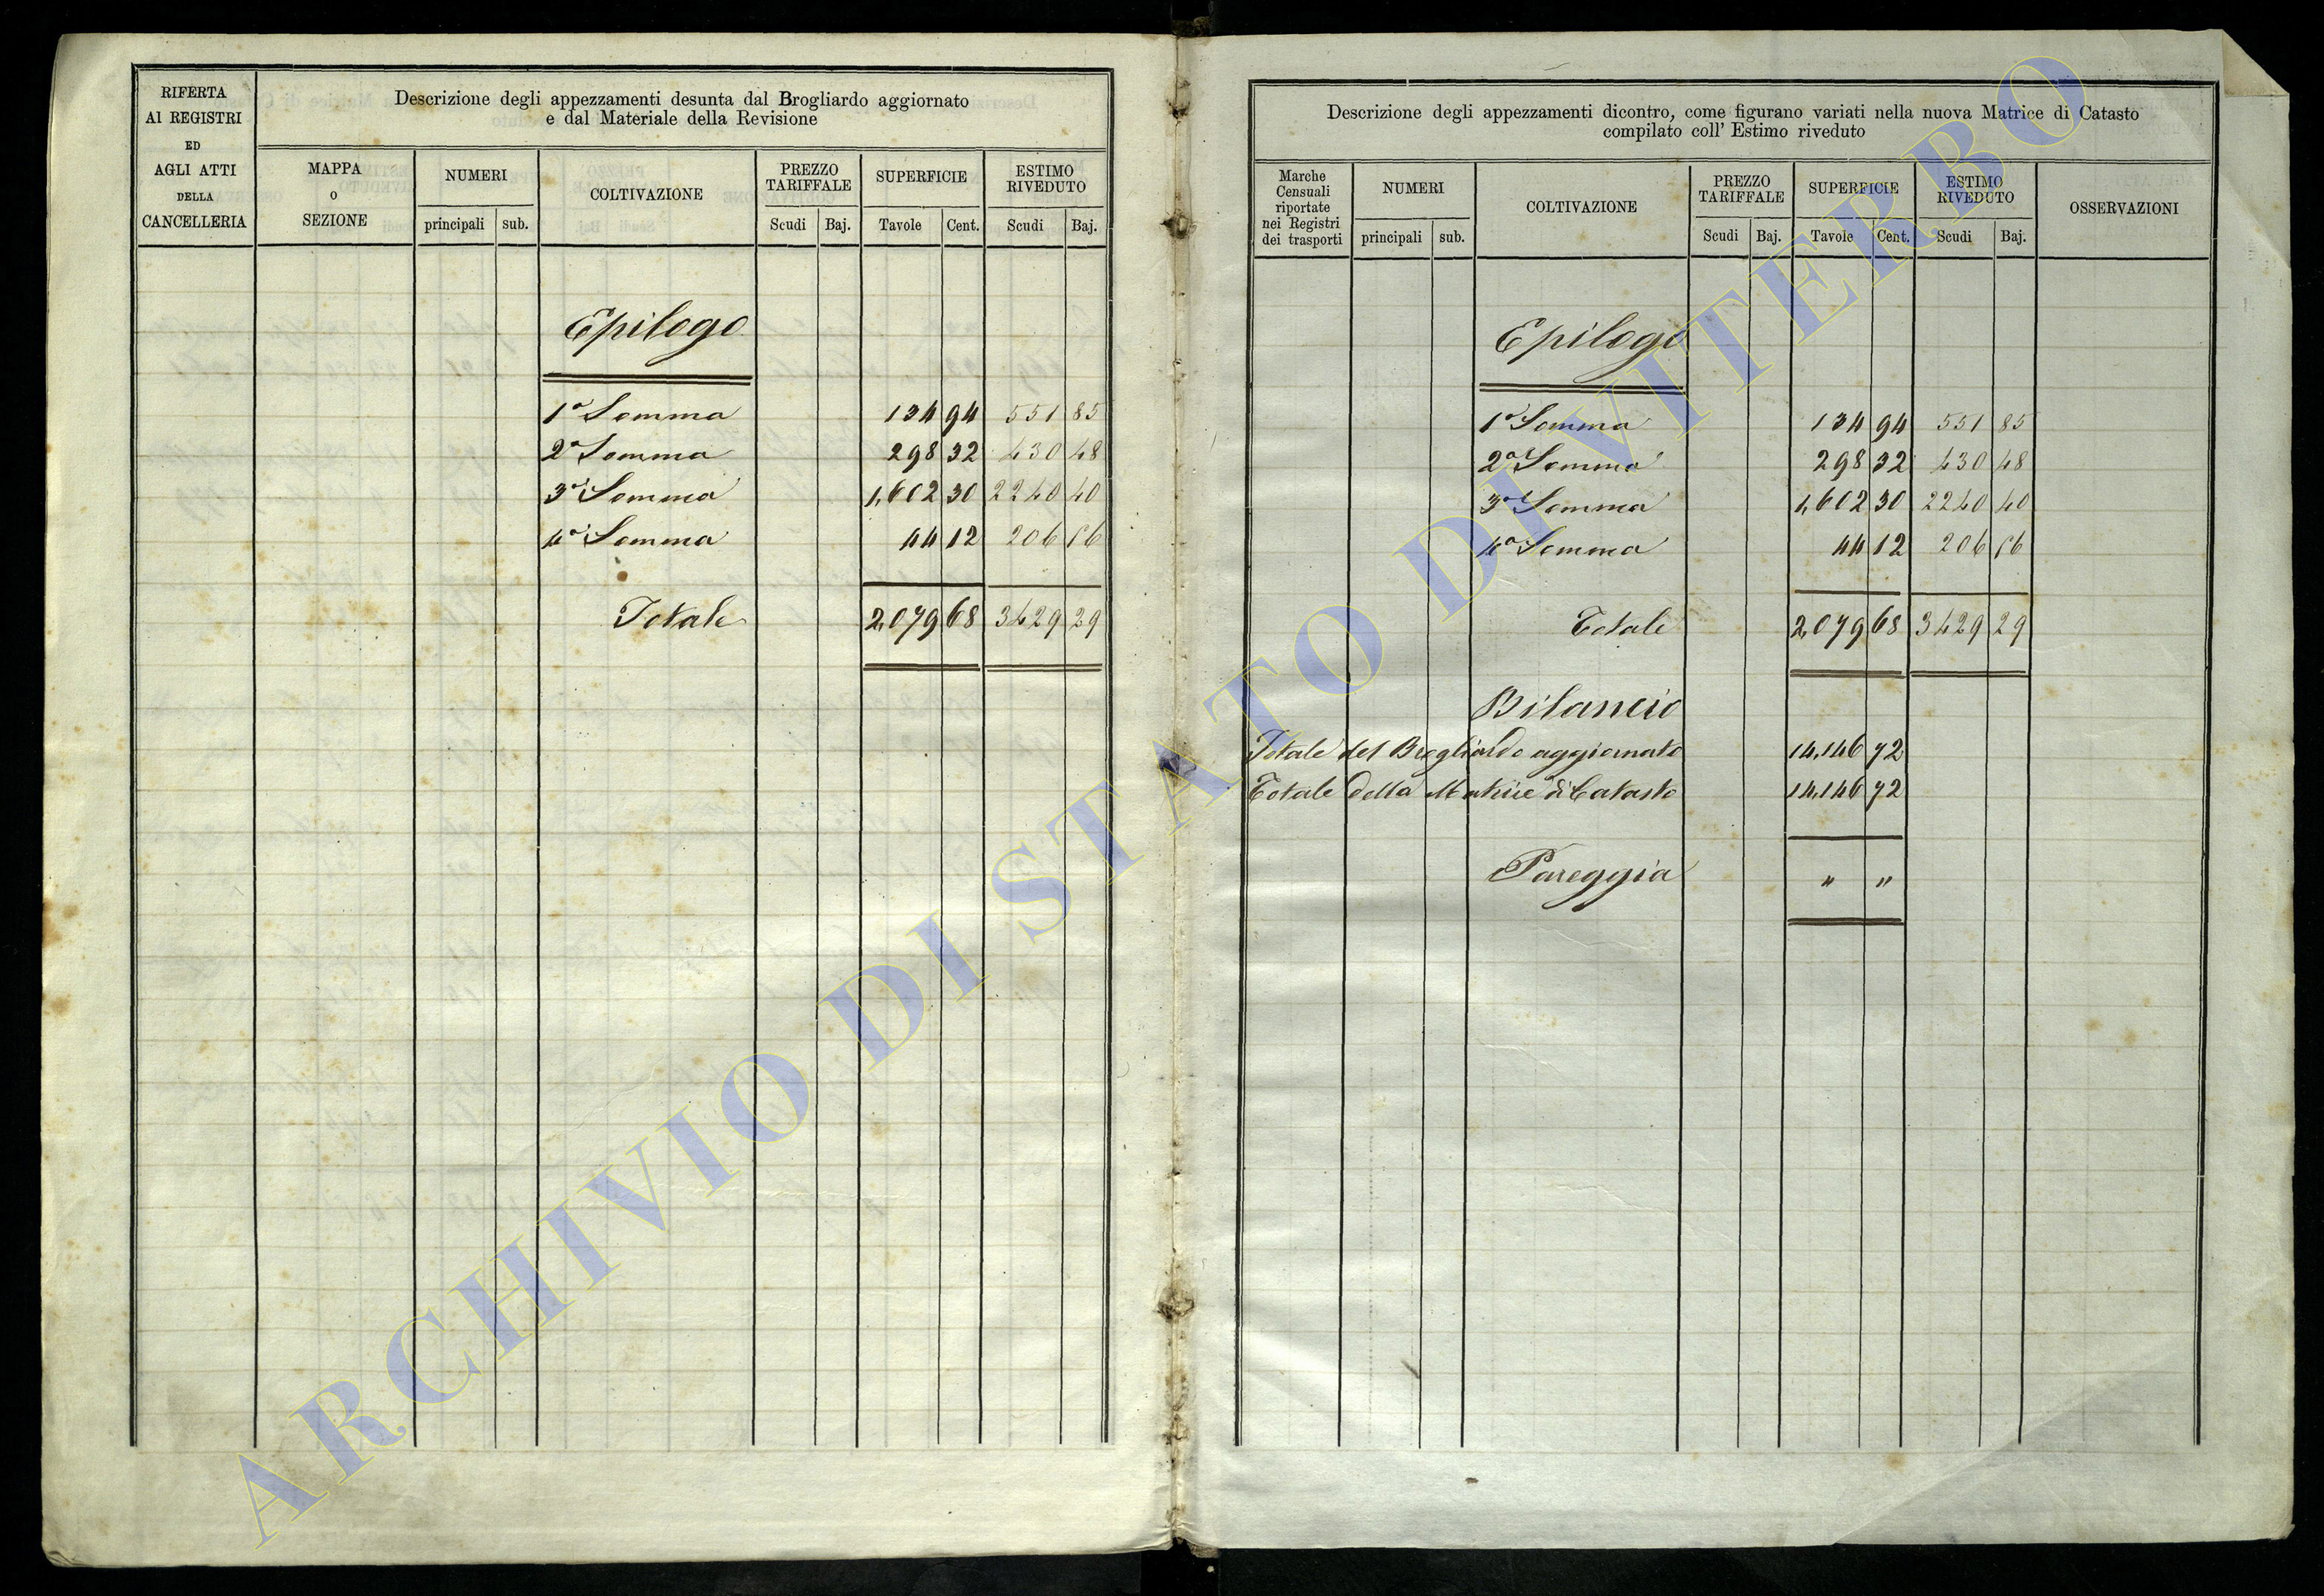 RIFERTA
AI REGISTRI
ED
AGLI ATTI
DELLA
CANCELLERIA
Descrizione degli appezzamenti desunta dal Brogliardo aggiornato
e dal Materiale della Revisione
MAPPA
O
SEZIONE
NUMERI
principali sub.
COLTIVAZIONE
PREZZO
TARIFFALE
Scudi Baj.
SUPERFICIE
Tavole Cent.
ESTIMO
RIVEDUTO
Scudi Baj.
Epilogo
1ª Somma 134 94 551 85
2ª Somma 298 32 430 48
3ª Somma 1,602 30 2240 40
4ª Somma 44 12 206 56
Totale 2,079 68 3429 29
Descrizione degli appezzamenti dicontro, come figurano variati nella nuova Matrice di Catasto
compilato coll' Estimo riveduto
Marche
Censuali
riportate
nei Registri
dei trasporti
NUMERI
principali sub.
COLTIVAZIONE
PREZZO
TARIFFALE
Scudi Baj.
SUPERFICIE
Tavole Cent.
ESTIMO
RIVEDUTO
Scudi Baj.
OSSERVAZIONI
Epilogo
1ª Somma 134 94 551 85
2ª Somma 298 32 430 48
3ª Somma 1,602 30 2240 40
4ª Somma 44 12 206 56
Totale 2,079 68 3429 29
Bilancio
Totale del Brogliardo aggiornato 14,146 72
Totale della Matrice di Catasto 14,146 72
Pareggia " "
ARCHIVIO DI STATO DI VITERBO